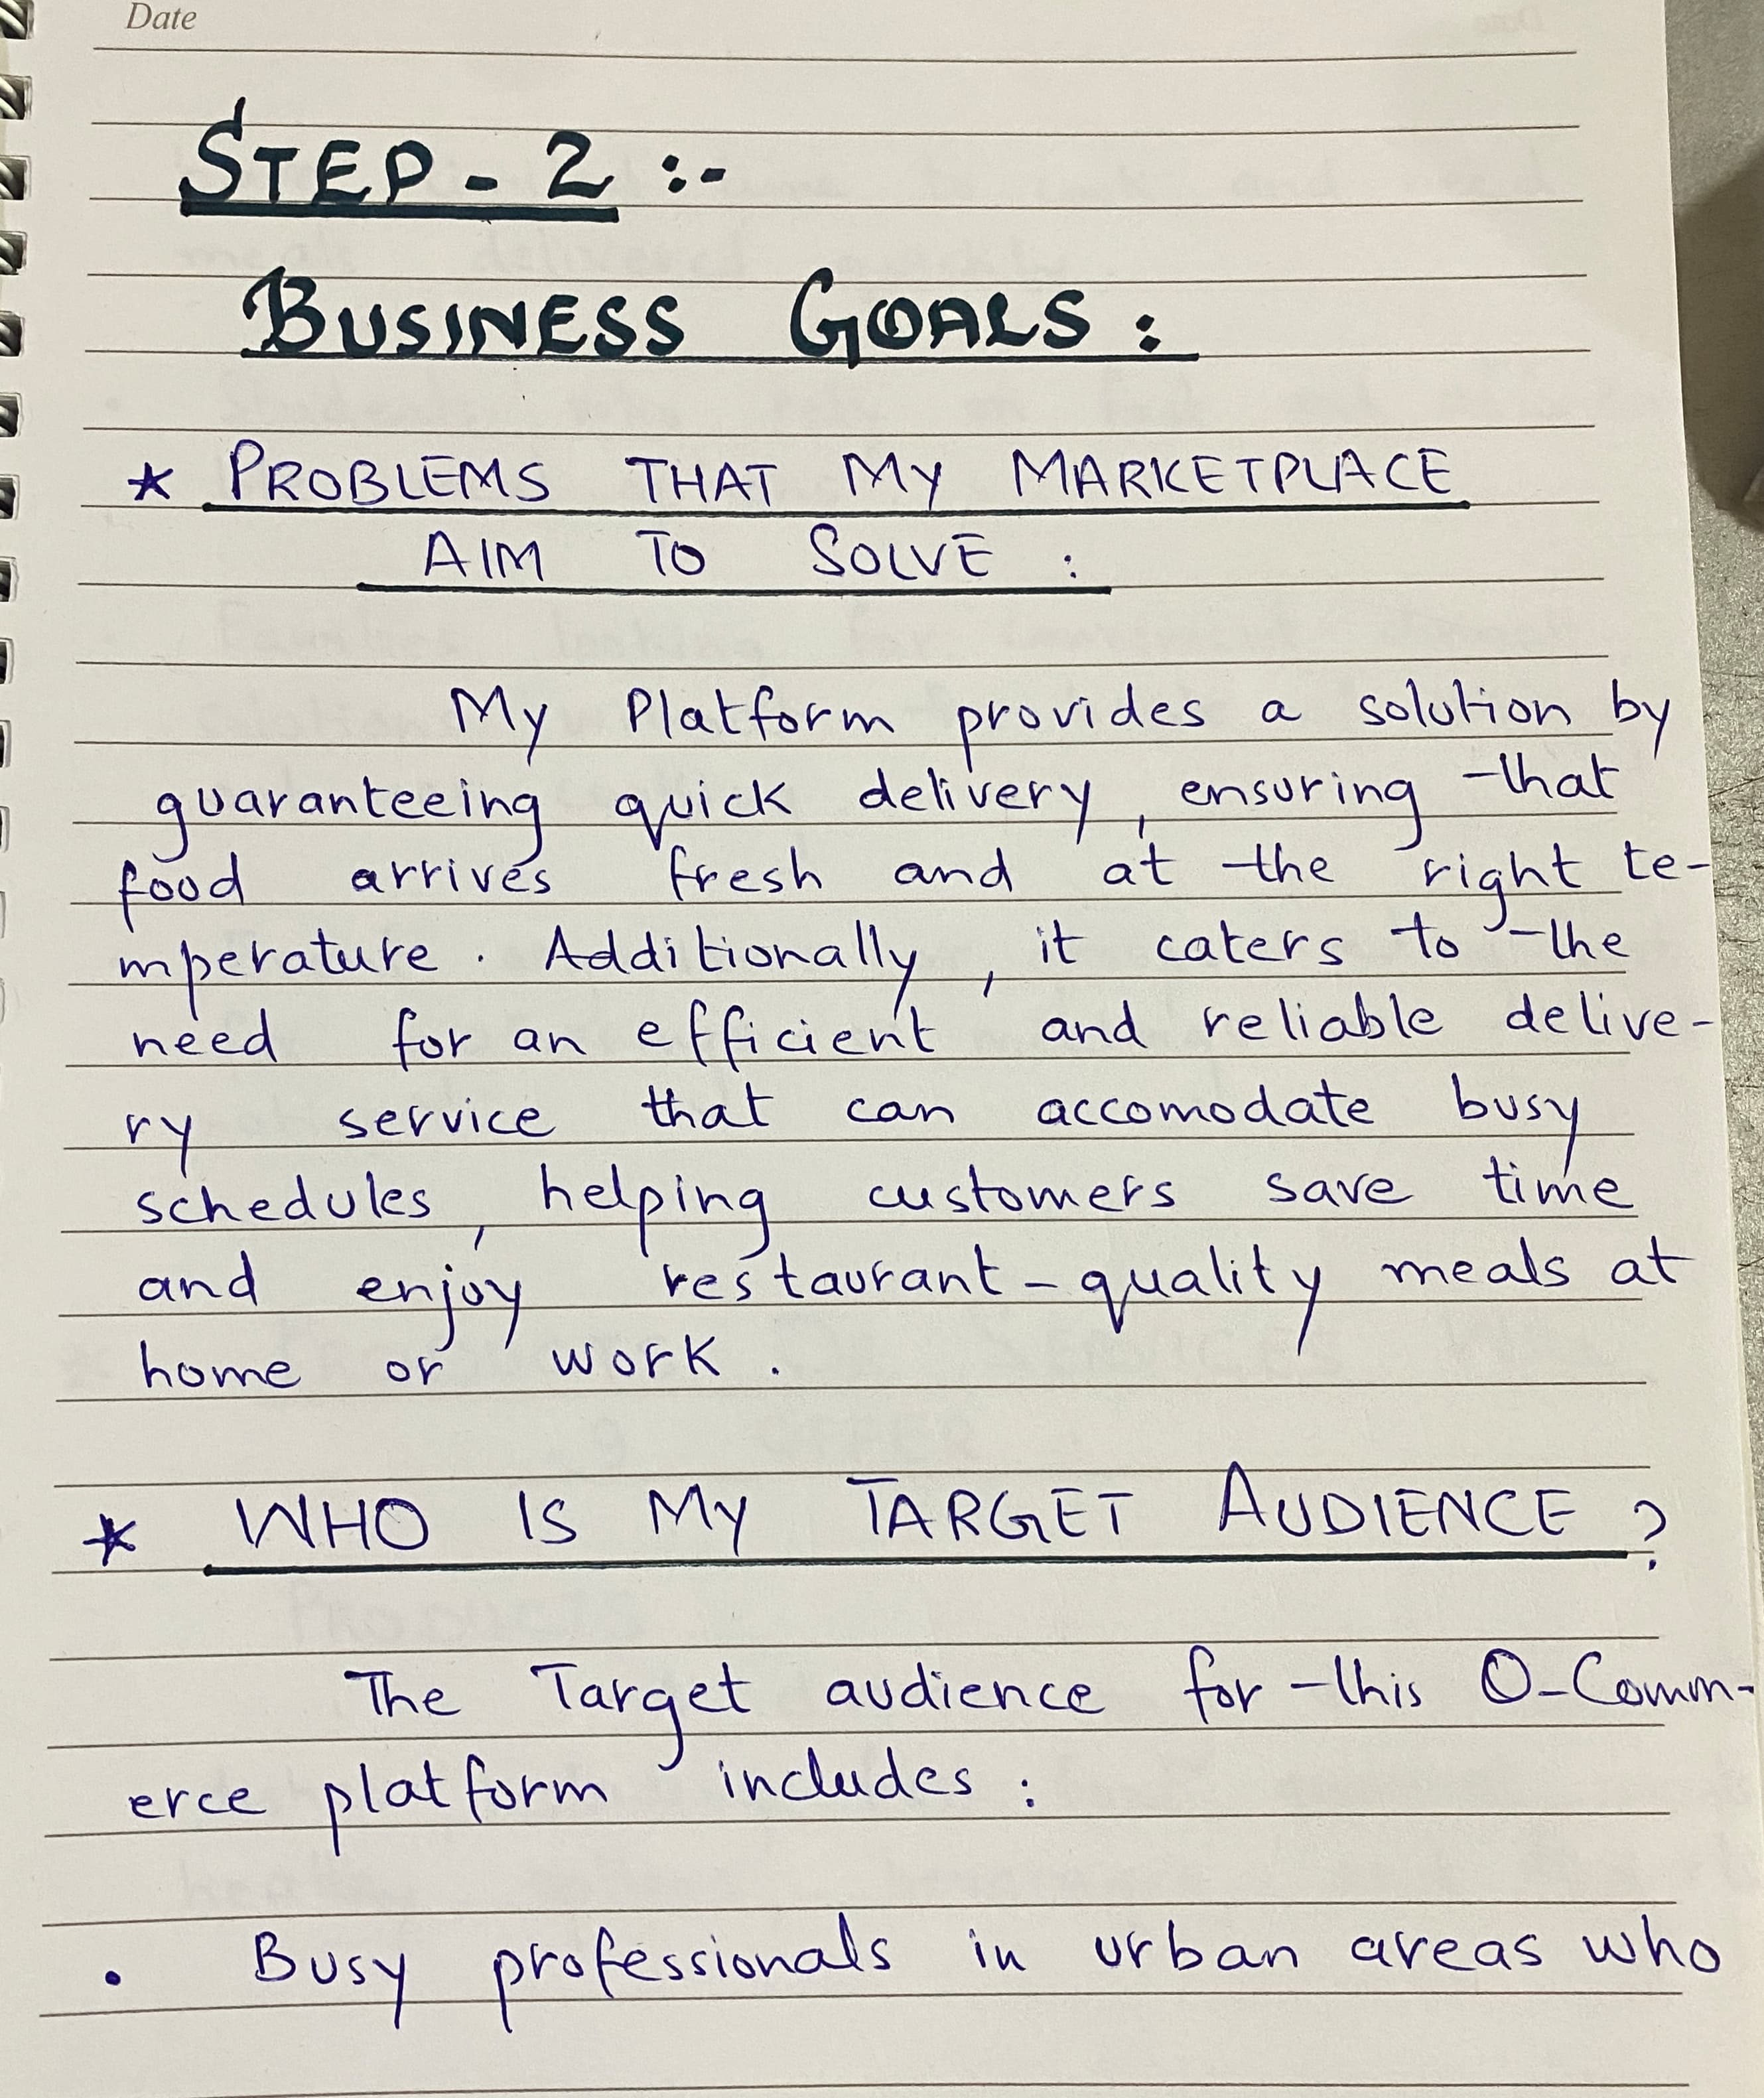 Date
STEP - 2 :-
BUSINESS GOALS :
* PROBLEMS THAT MY MARKETPLACE
AIM TO SOLVE :
My Platform provides a solution by
guaranteeing quick delivery, ensuring that
food arrives fresh and at the right te-
mperature. Additionally, it caters to the
need for an efficient and reliable delive-
ry service that can accomodate busy
schedules, helping customers save time
and enjoy restaurant-quality meals at
home or work.
* WHO IS MY TARGET AUDIENCE ?
The Target audience for this Q-Comm-
erce platform includes :
• Busy professionals in urban areas who